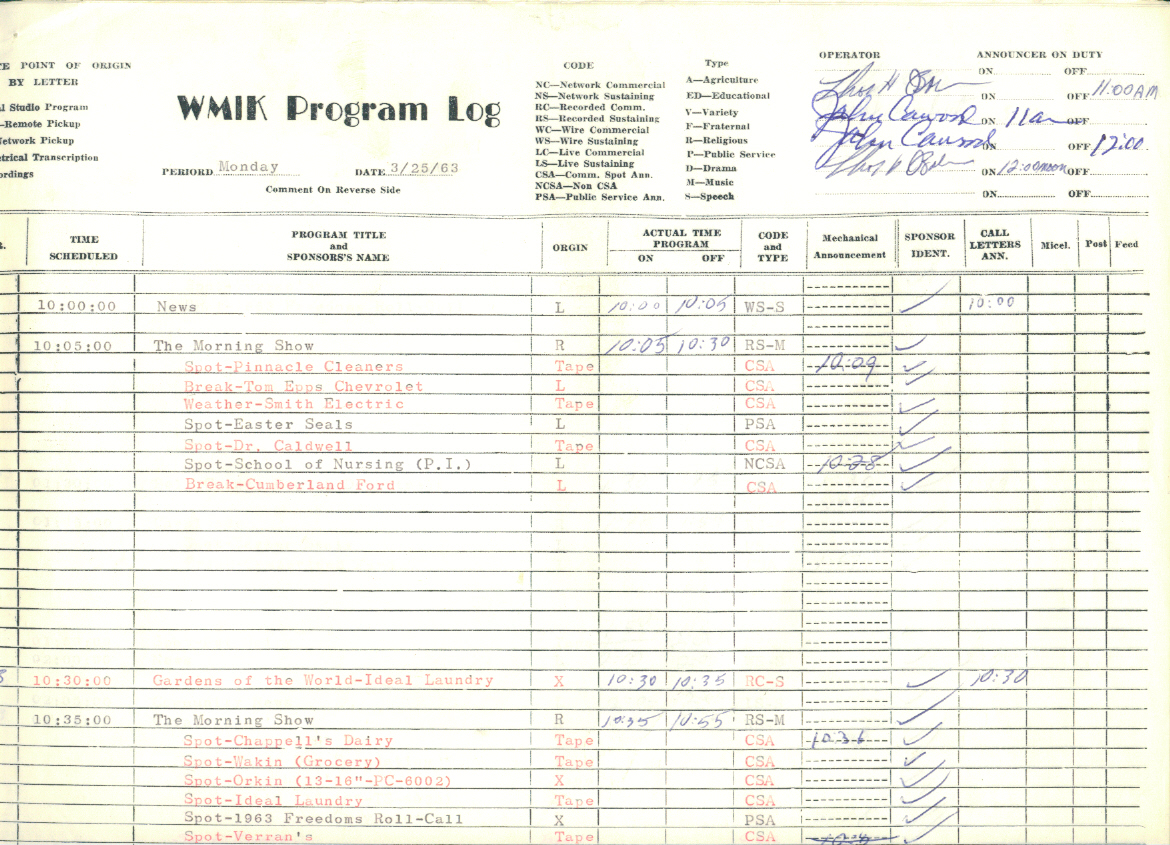 TE POINT OF ORIGIN
BY LETTER
al Studio Program
—Remote Pickup
Network Pickup
etrical Transcription
ordings
WMIK Program Log
PERIORD Monday DATE 3/25/63
Comment On Reverse Side
CODE
NC—Network Commercial
NS—Network Sustaining
RC—Recorded Comm.
RS—Recorded Sustaining
WC—Wire Commercial
WS—Wire Sustaining
LC—Live Commercial
LS—Live Sustaining
CSA—Comm. Spot Ann.
NCSA—Non CSA
PSA—Public Service Ann.
Type
A—Agriculture
ED—Educational
V—Variety
F—Fraternal
R—Religious
P—Public Service
D—Drama
M—Music
S—Speech
OPERATOR ANNOUNCER ON DUTY
ON OFF
ON OFF 11:00 AM
John Cawood ON 11am OFF
John Cawood ON OFF 12:00
ON 12:00 noon OFF
ON OFF
TIME SCHEDULED
PROGRAM TITLE and SPONSORS'S NAME
ORGIN
ACTUAL TIME PROGRAM ON OFF
CODE and TYPE
Mechanical Announcement
SPONSOR IDENT.
CALL LETTERS ANN.
Micel.
Post
Feed
10:00:00 News L 10:00 10:05 WS-S ✓ 10:00
10:05:00 The Morning Show R 10:05 10:30 RS-M ✓
Spot-Pinnacle Cleaners Tape CSA 10:09 ✓
Break-Tom Epps Chevrolet L CSA ✓
Weather-Smith Electric Tape CSA ✓
Spot-Easter Seals L PSA ✓
Spot-Dr. Caldwell Tape CSA ✓
Spot-School of Nursing (P.I.) L NCSA 10:28 ✓
Break-Cumberland Ford L CSA ✓
10:30:00 Gardens of the World-Ideal Laundry X 10:30 10:35 RC-S ✓ 10:30
10:35:00 The Morning Show R 10:35 10:55 RS-M ✓
Spot-Chappell's Dairy Tape CSA 10:36 ✓
Spot-Wakin (Grocery) Tape CSA ✓
Spot-Orkin (13-16"-PC-6002) X CSA ✓
Spot-Ideal Laundry Tape CSA ✓
Spot-1963 Freedoms Roll-Call X PSA ✓
Spot-Verran's Tape CSA ✓